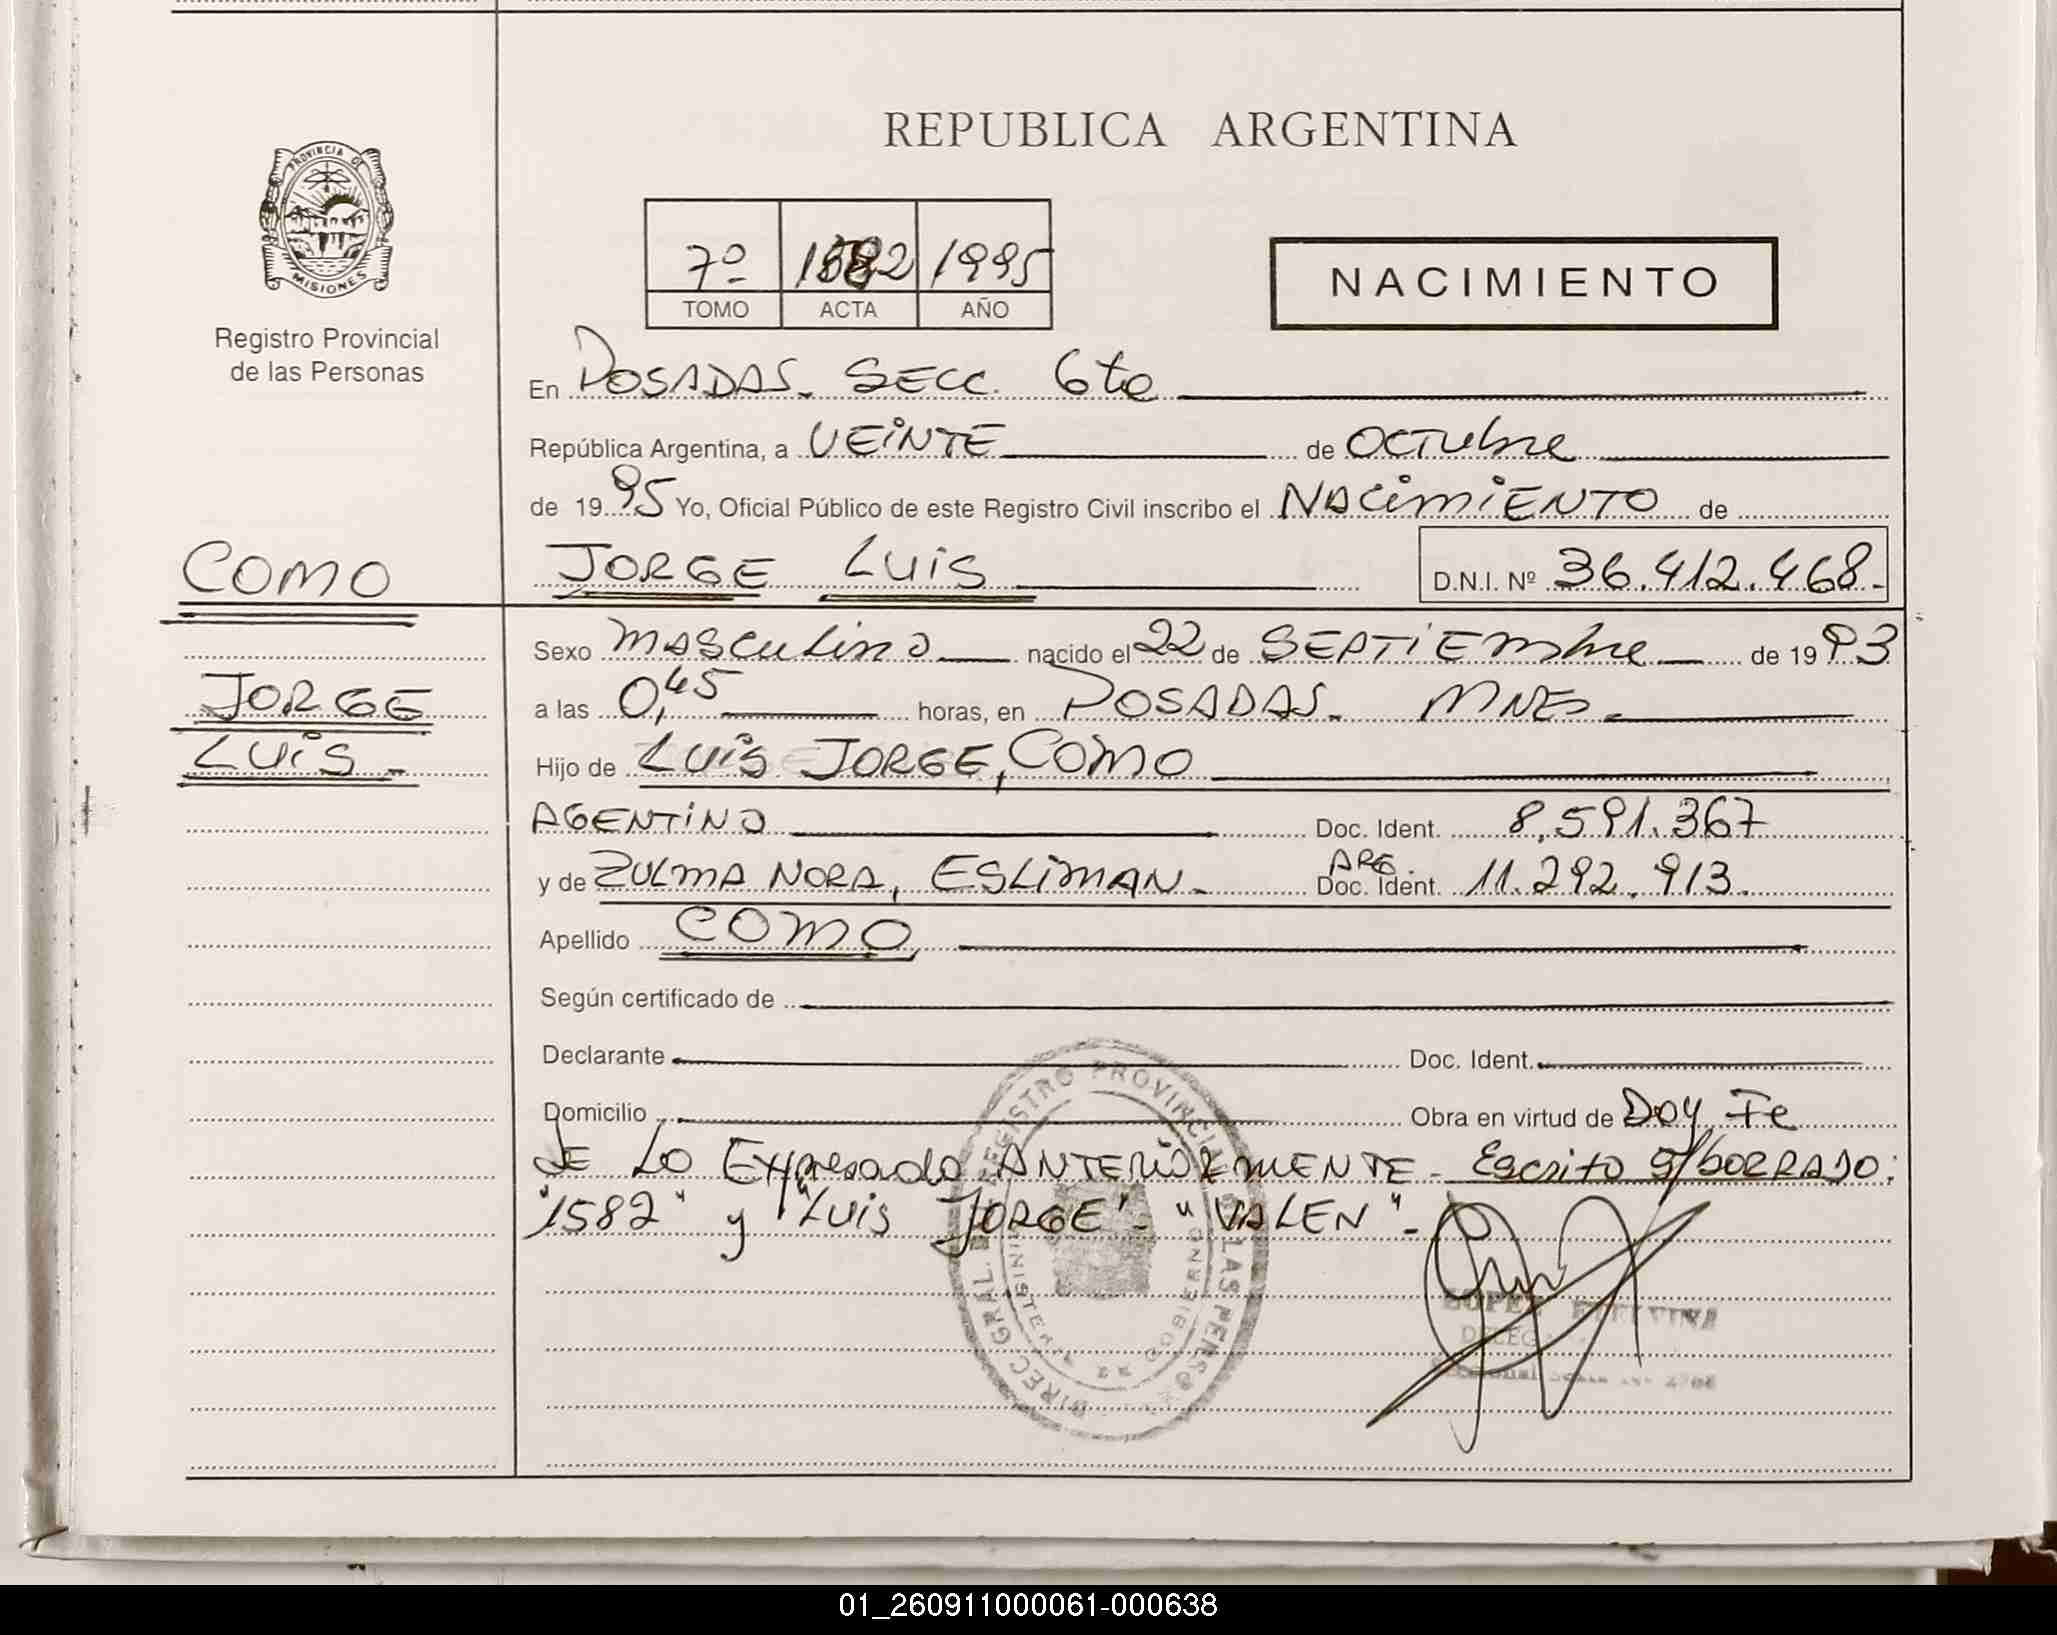 REPUBLICA ARGENTINA
PROVINCIA DE
MISIONES
Registro Provincial
de las Personas
7º 1582 1995
TOMO ACTA AÑO
NACIMIENTO
En POSADAS. SECC. 6ta
República Argentina, a VEINTE de OCTUbre
de 1995 Yo, Oficial Público de este Registro Civil inscribo el NACimiENTO de
COMO
JORGE LUiS D.N.I. Nº 36.412.468.-
Sexo MASCULinO nacido el 22 de SEPTiEmbre de 1993
JORGE
a las 0,45 horas, en POSADAS. MNES.
LUiS.-
Hijo de LUiS JORGE, COMO
AGENTiNO Doc. Ident. 8.591.367
y de ZULMA NORA, ESLiMAN.- ARG. Doc. Ident. 11.292.913.
Apellido COMO
Según certificado de
Declarante Doc. Ident.
Domicilio Obra en virtud de Doy Fe
de Lo Expresado ANTERiORMENTE - Escrito s/BORRADO:
"1582" y "LUiS JORGE" - "VALEN".-
DIREC. GRAL. REGISTRO PROVINCIAL LAS PERSO
LOPEZ ETELVINA
DELEG